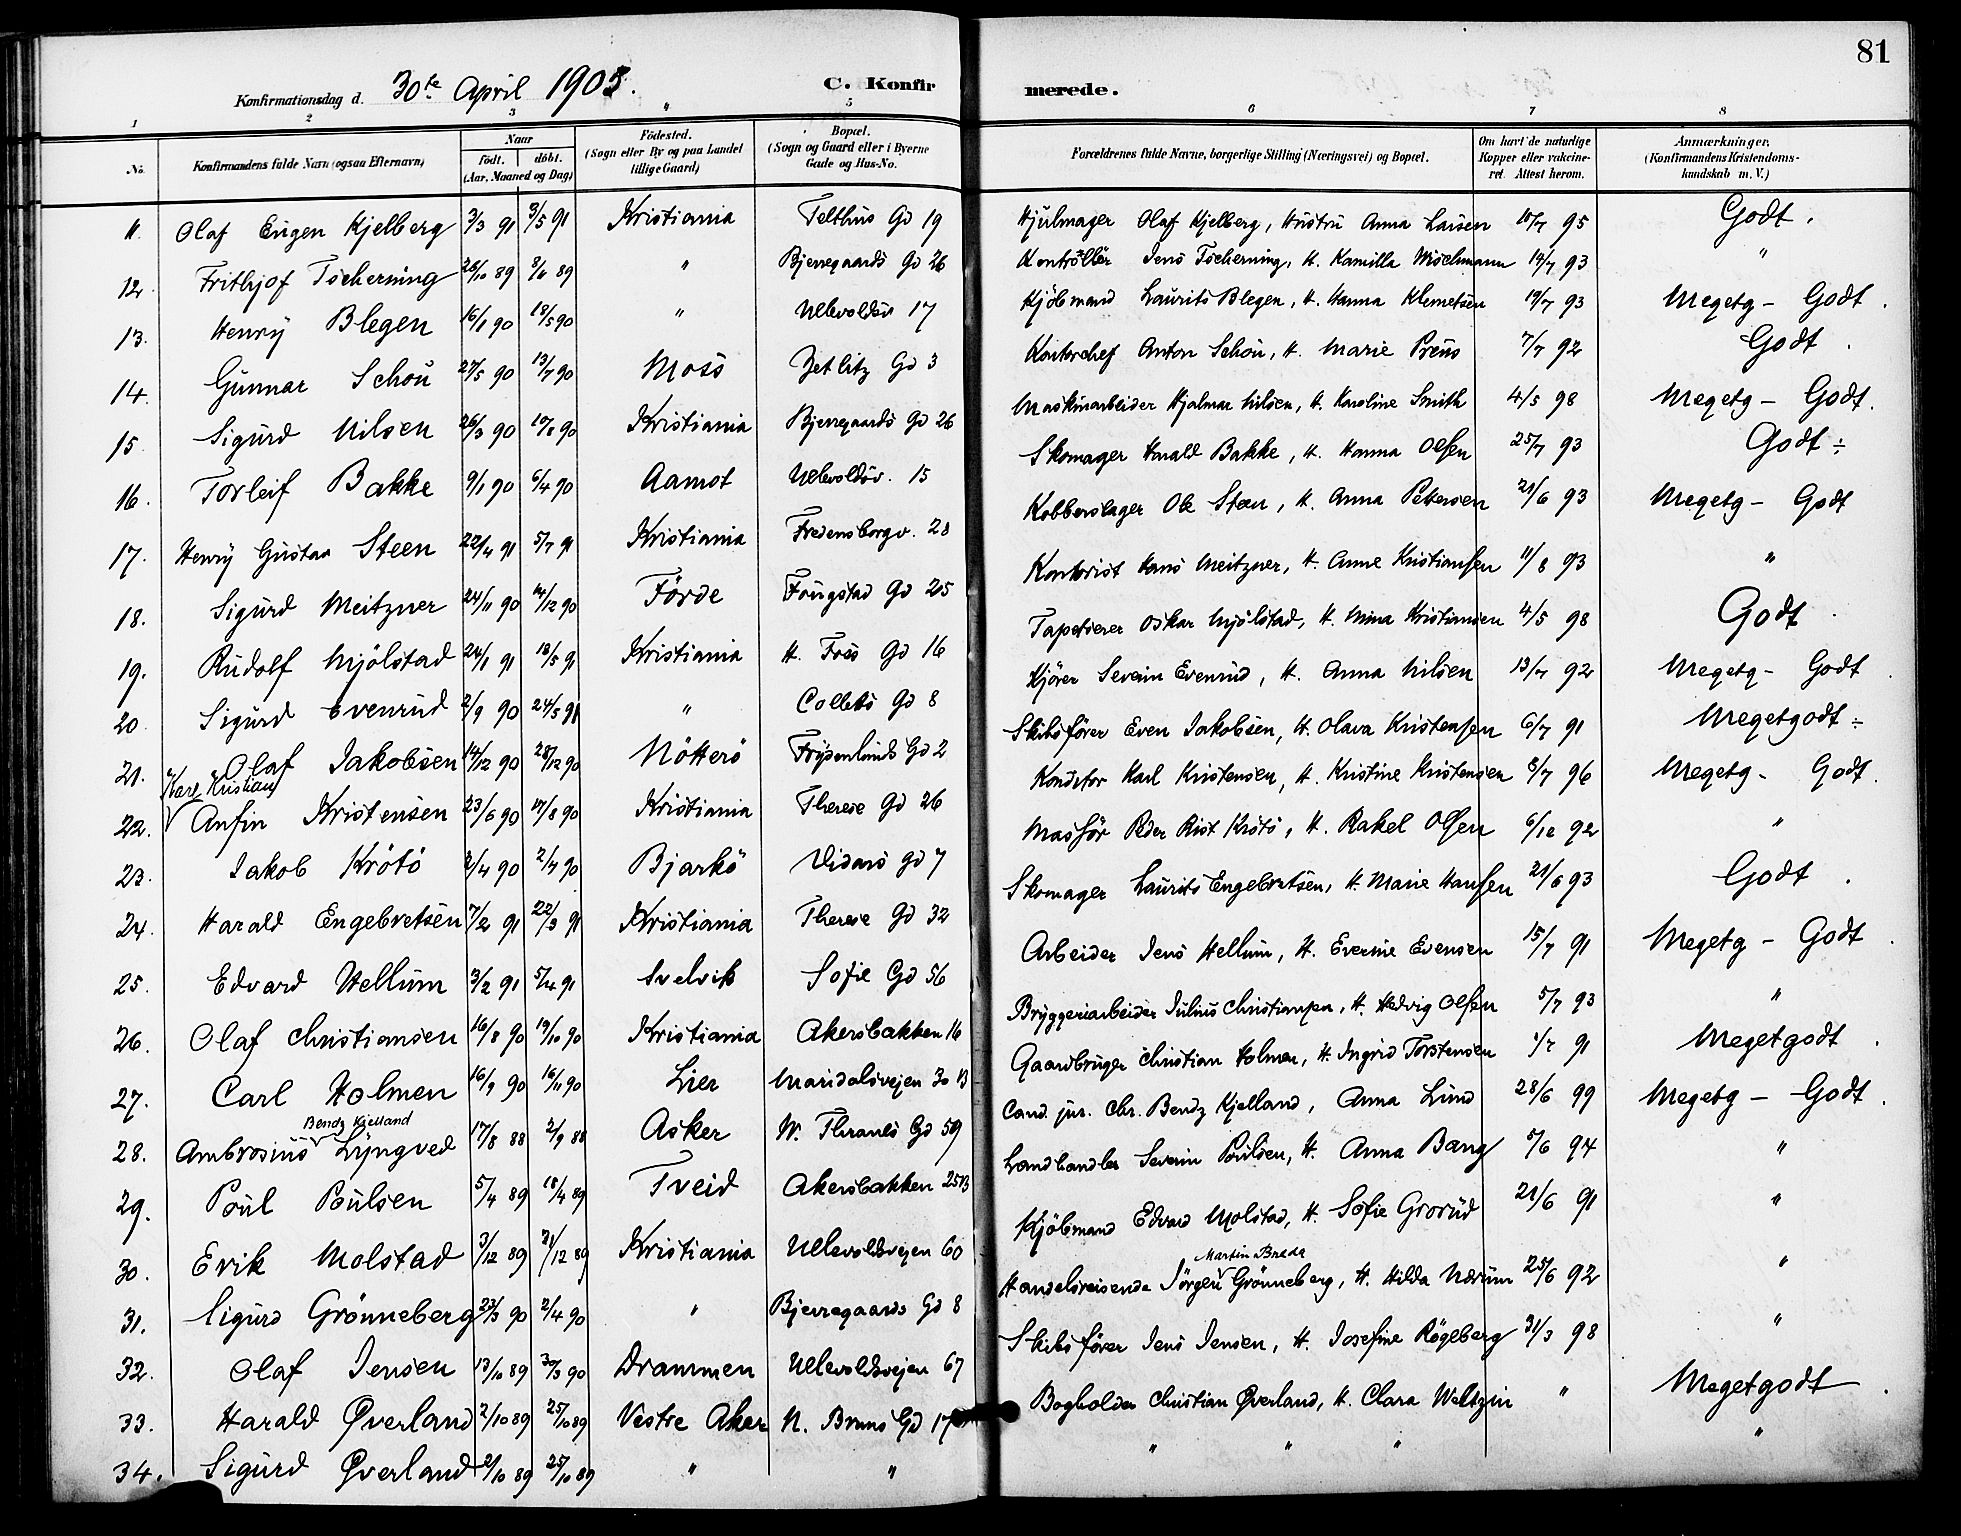 81
Konfirmationsdag d. 30te April 1905. C. Konfirmerede.
1 2 3 " 5 6 7 8
No. Konfirmandens fulde Navn (ogsaa Efternavn) Naar födt. döbt. (Aar, Maaned og Dag) Födested. (Sogn eller By og paa Landet tillige Gaard) Bopæl. (Sogn og Gaard eller i Byerne Gade og Hus-No. Forældrenes fulde Navne, borgerlige Stilling (Næringsvei) og Bopæl. Om havt de naturlige Kopper eller vakcineret. Attest herom. Anmærkninger. (Konfirmandens Kristendomskundskab m. V.)
11. Olaf Eugen Kjelberg 3/3 91 3/5 91 Kristiania Telthus Gd 19 Hjulmager Olaf Kjelberg, Hustru Anna Larsen 10/7 95 Godt.
12. Frithjof Tscherning 28/10 89 8/11 89 " Bjerregaards Gd 26 Kontrollör Jens Tscherning, H. Kamilla Wischmann 19/7 93 "
13. Henry Blegen 16/1 90 18/5 90 " Ullevoldsv 17 Kjöbmand Laurits Blegen, H. Hanna Klemetsen 19/7 93 Megetg - Godt.
14. Gunnar Schou 27/5 90 13/7 90 Moss Zetlitz Gd 3 Kontorchef Anton Schou, H. Marie Preus 7/7 92 Godt.
15. Sigurd Nilsen 26/3 90 Kristiania Bjerregaards Gd 26 Maskinarbeider Hjalmar Nilsen, H. Karoline Smith 4/5 98 Megetg - Godt.
16. Torleif Bakke 9/1 90 6/4 90 Aamot Ullevoldsv. 15 Skomager Harald Bakke, H. Hanna Olsen 25/7 93 Godt ÷
17. Henry Gustav Steen 22/4 91 5/7 91 Kristiania Fredensborgv. 28 Kobberslager Ole Steen, H. Anna Pettersen 21/6 93 Megetg - Godt
18. Sigurd Meitzner 24/11 90 14/12 90 Förde Fougstad Gd 25 Kontorist Hans Meitzner, H. Anne Kristiansen 11/8 93 "
19. Rudolf Mjölstad 24/1 91 18/5 91 Kristiania H. Foss Gd 16 Tapetserer Oskar Mjölstad, H. Mina Kristiansen 4/5 98 Godt.
20. Sigurd Evenrud 2/9 90 24/5 91 " Colletts Gd 8 Kjörer Severin Evenrud, H. Anna Nilsen 13/7 92 Megetg - Godt.
21. Olaf Jakobsen 14/12 90 28/12 90 Nötterö Frydenlunds Gd 2 Skibsförer Even Jakobsen, H. Olava Kristensen 6/7 91 Megetgodt ÷
Karl Kristian
22. Anfin Kristensen 23/6 90 17/8 90 Kristiania Therese Gd 26 Konditor Karl Kristensen, H. Kristine Kristensen 8/7 96 Megetg - Godt.
23. Jakob Krötö 2/4 90 2/4 90 Bjarkö Vidars gd 7 Massör Peder Rist Krötö, H. Rakel Olsen 6/12 92 "
24. Harald Engebretsen 7/2 91 22/3 91 Kristiania Therese Gd 32 Skomager Laurits Engebretsen, H. Marie Hansen 21/6 93 Godt.
25. Edvard Hellum 3/2 91 5/4 91 Svelvik Sofie Gd 56 Arbeider Jens Hellum, H. Everine Evensen 15/7 91 Megetg - Godt.
26. Olaf Christiansen 16/8 90 19/10 90 Kristiania Akersbakken 16 Bryggeriarbeider Julius Christiansen, H. Hedvig Olsen 5/7 93 "
27. Carl Holmen 16/9 90 16/11 90 Lier Maridalsvejen 30 B Gaardbruger Christian Holmen, H. Ingrid Torstensen 1/7 91 Megetgodt.
Bendz Kjelland
28. Ambrosius Lyngved 17/8 88 2/9 88 Asker M. Thranes Gd 59 Cand. jur. Chr. Bendz Kjelland, Anna Lund 28/6 99 Megetg - Godt.
29. Poul Poulsen 5/4 89 18/4 89 Tveid Akersbakken 25B Landhandler Severin Poulsen, H. Anna Bang 5/6 94 "
30. Erik Molstad 3/12 89 31/12 89 Kristiania Ullevoldsvejen 60 Kjöbmand Edvard Molstad, H. Sofie Grorud 21/6 91 "
Martin Brede
31. Sigurd Grönneberg 23/3 90 2/4 90 " Bjerregaards Gd 8 Handelsreisende Jörgen Grönneberg, H. Hilda Nærum 25/6 92 "
32. Olaf Jensen 13/10 89 30/3 90 Drammen Ullevoldsvejen 67 Skibsförer Jens Jensen, H. Josefine Rögeberg 31/3 98 "
33. Harald Øverland 2/10 89 25/10 89 Vestre Aker N. Bruns Gd 17 Bogholder Christian Øverland, H. Clara Weltzin " Megetgodt.
34. Sigurd Øverland 2/10 89 25/10 89 " " " " " "